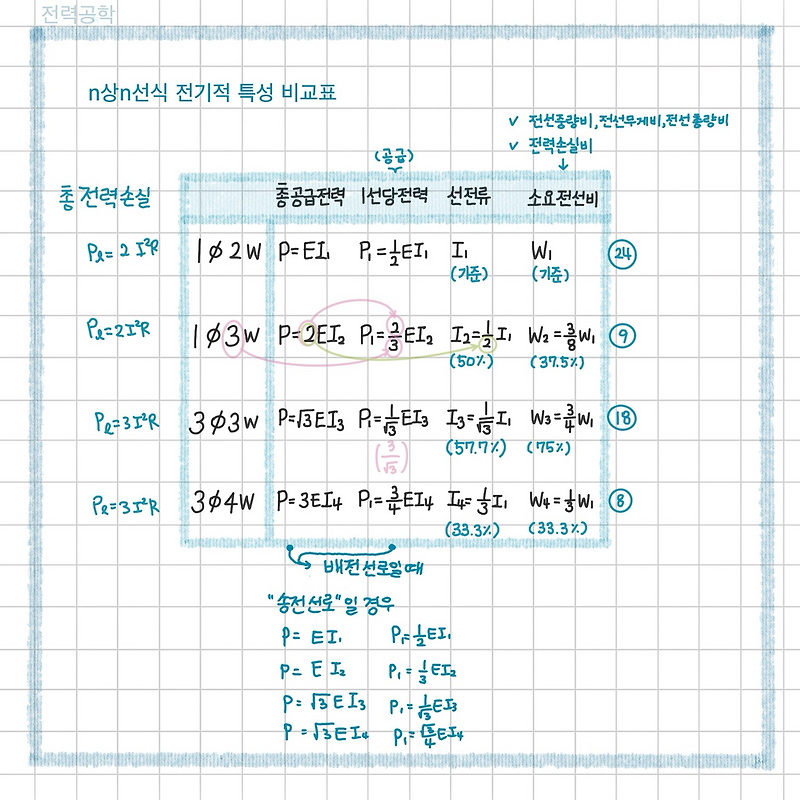 전력공학
n상n선식 전기적 특성 비교표
✓ 전선중량비, 전선무게비, 전선총량비
✓ 전력손실비
(공급)
총 전력손실 총공급전력 1선당전력 선전류 소요전선비
Pℓ = 2I²R 1∅2W P=EI₁ P₁=½EI₁ I₁ W₁ ㉔
(기준) (기준)
Pℓ=2I²R 1∅3W P=2EI₂ P₁=⅔EI₂ I₂=½I₁ W₂=⅜W₁ ⑨
(50%) (37.5%)
Pℓ=3I²R 3∅3W P=√3EI₃ P₁=1/√3EI₃ I₃=1/√3I₁ W₃=¾W₁ ⑱
(3/√3) (57.7%) (75%)
Pℓ=3I²R 3∅4W P=3EI₄ P₁=¾EI₄ I₄=⅓I₁ W₄=⅓W₁ ⑧
(33.3%) (33.3%)
배전선로일때
"송전선로"일 경우
P= EI₁ P₁=½EI₁
P= E I₂ P₁=⅓EI₂
P=√3EI₃ P₁=1/√3EI₃
P=√3EI₄ P₁=√3/4EI₄